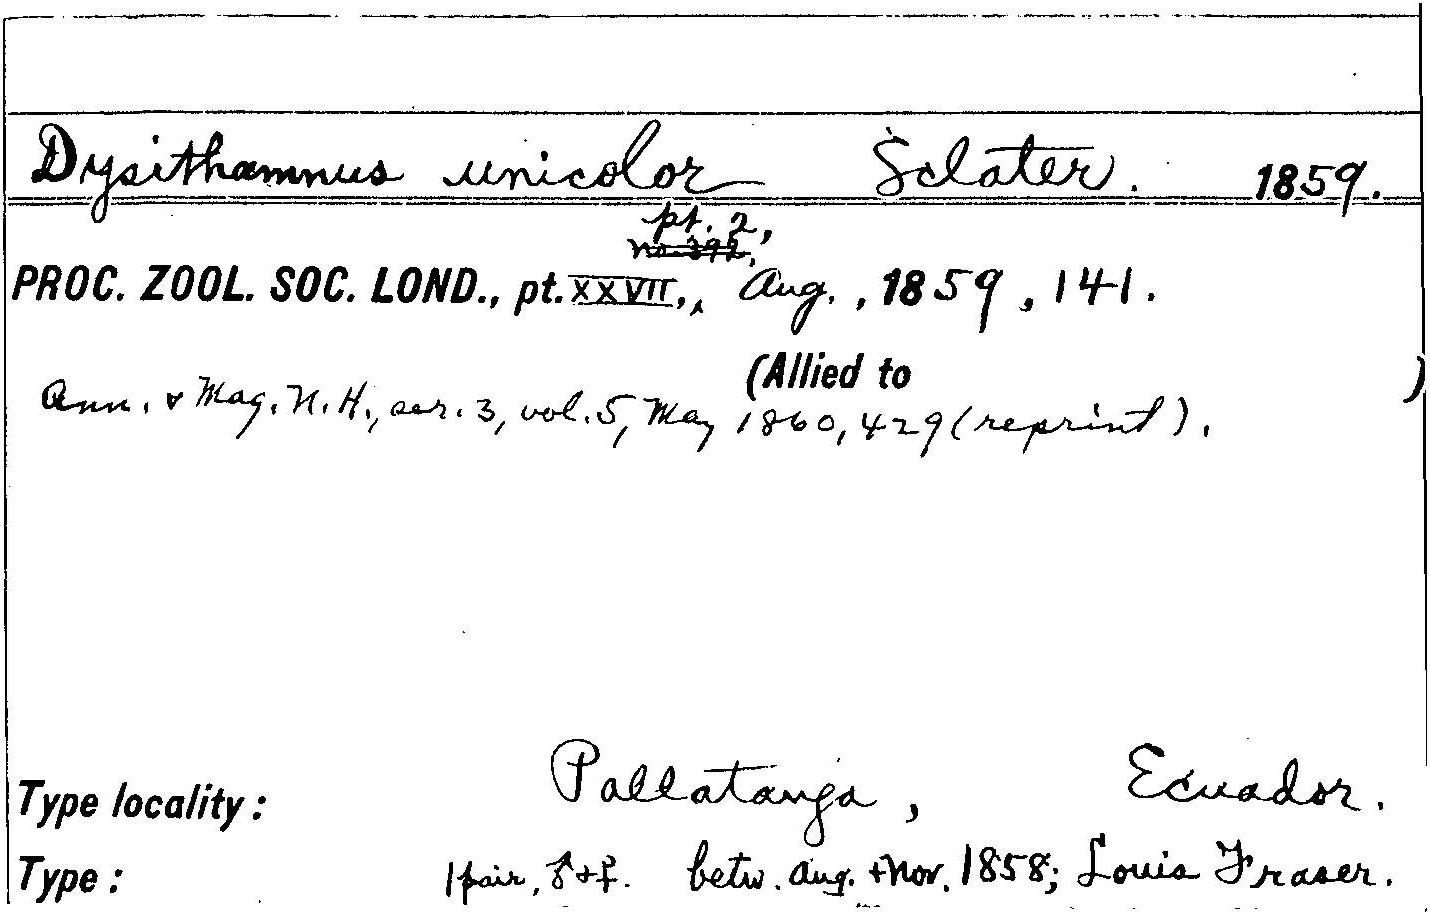 Dysithamnus unicolor Sclater. 1859.
pt. 2,
no. 392,
PROC. ZOOL. SOC. LOND., pt. XXVII, ‸ Aug., 1859, 141.
(Allied to )
Ann. & Mag. N.H., ser. 3, vol. 5, May 1860, 429 (reprint).
Type locality: Pallatanga, Ecuador.
Type: 1 pair, ♂+♀. betw. Aug. + Nov. 1858; Louis Fraser.